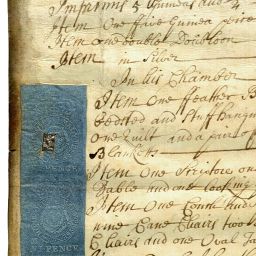 Imprimis 5 Guineas and 4
Item One five Guinea piece
Item one double Doubloon
Item in Silver
In his Chamber
Item One feather B
Bedsted and Stuff hang
one Quilt and a pair of
Blanketts
Item One
Table and one looking
Item One
nine Cane Chairs two
Chairs and one Oval Ta
PENCE
PENCE